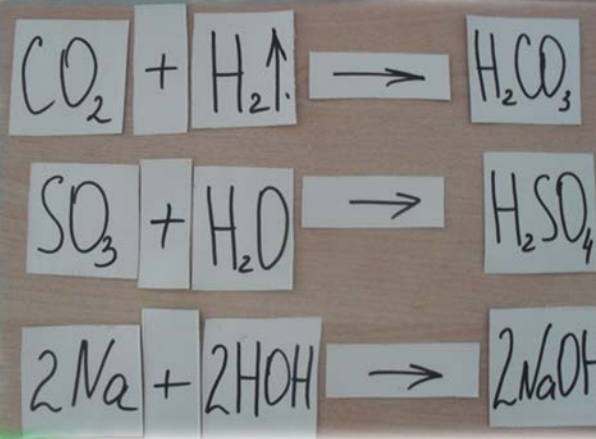 CO₂ + H₂↑ → H₂CO₃
SO₃ + H₂O → H₂SO₄
2Na + 2HOH → 2NaOH